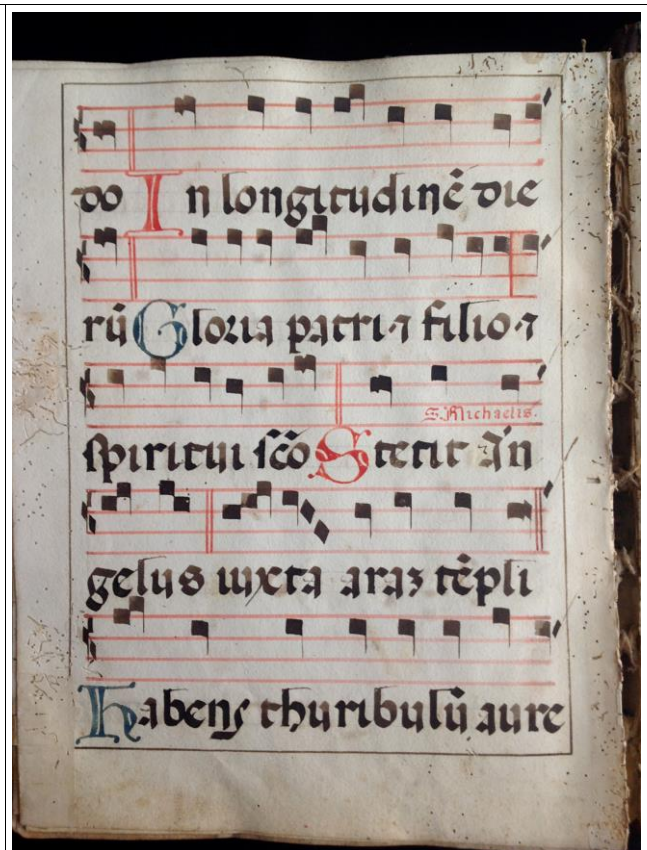 do In longitudinē die
rū Gloria patri ⁊ filio ⁊
S. Michaelis.
spiritui scō Stetit An
gelus iuxta araꝫ tēpli
habens thuribulū aure